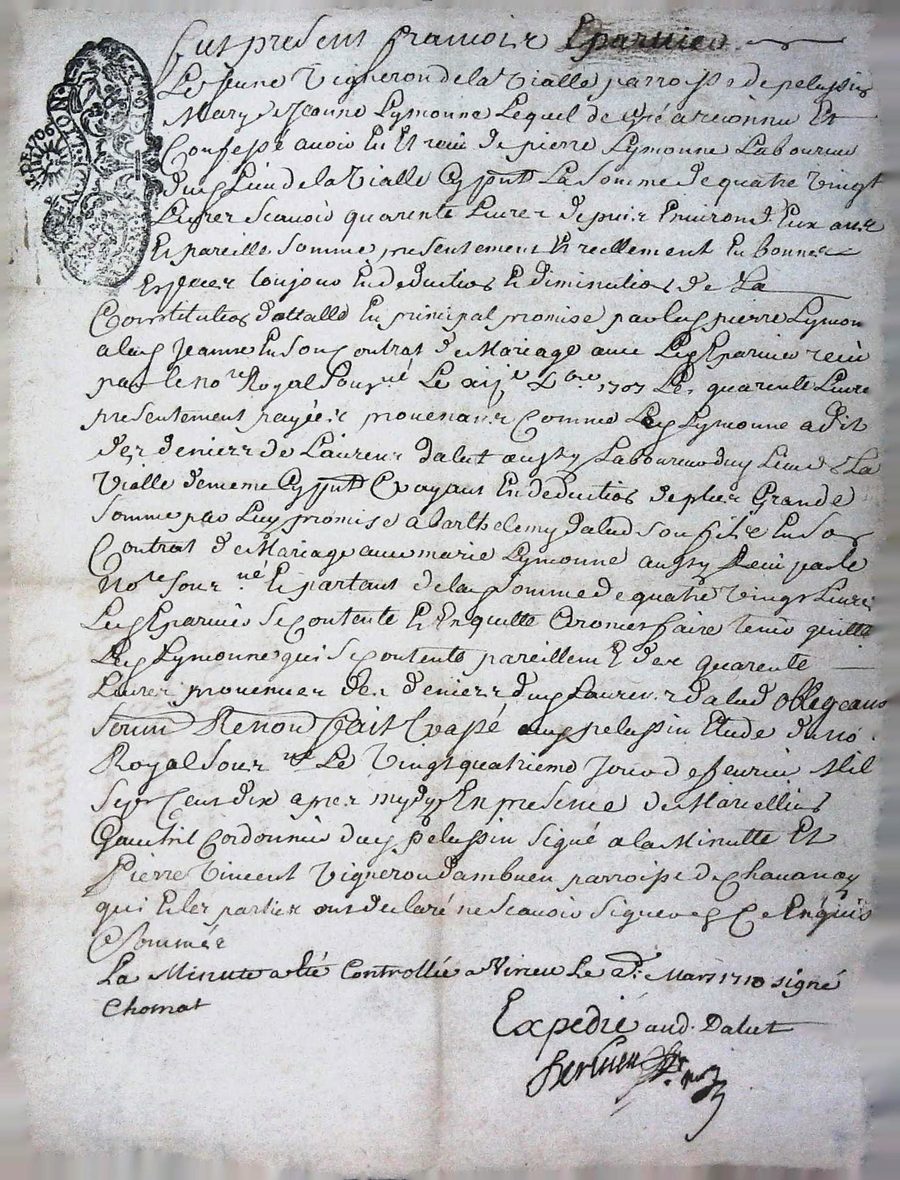 Fut present francois Eparvier
Le Jeune Vigneron de la Vialle parroisse de pelussin
Mary de Jeanne Lymonne Lequel de gré a reconnu Et
Confessé avoir Eu Et receu de pierre Lymonne Laboureur
dud Lieu de la Vialle Cy pnt La somme de quatre Vingt
Livres Scavoir quarente Livres depuis Environ deux ans
Et pareille somme presentement Et reellement En bonnes
Especes toujours En deduction Et diminution de La
Constitution dottalle En principal promise par led pierre Lymon
a lad Jeanne En son Contrat de Mariage avec Led Eparvier receu
par le nore Royal Soussné Le xije xbre 1707 Les quarente Livres
presentement payées provenans Comme Led Lymonne a dit
des deniers de Laurens dalut aussy Laboureur dud Lieu de La
Vialle de meme Cy pnt Et payant En deduction de plus Grande
somme par Luy promise a barthelemy dalud son fils En son
Contrat de Mariage avec marie Lymonne aussy Receu par le
Nore sousné Et partant de lad somme de quatre Vingt Livres
Led Eparvier se contente Et En quitte Et promet faire tenir quitte
Led Lymonne qui se contente pareillemt Et des quarente
Livres provenues des deniers dud Laurens dalud obligeans
soum Renon fait Et passé aud pelussin Etude du no
Royal Sousne Le Vingt quatrieme Jour de fevrier Mil
sept Cent dix apres mydy En presence de Marcellin
Gautril Cordonnier dud pelussin signé a la Minutte Et
Pierre Vincent Vigneron dambuen parroisse de Chavanay
qui Et les parties ont declaré ne Scavoir signer de Ce Enquis
Et sommés
La Minute a Eté Controllée a Virieu Le Mars 1710 signé
Chomat
Expedié aud. Dalut